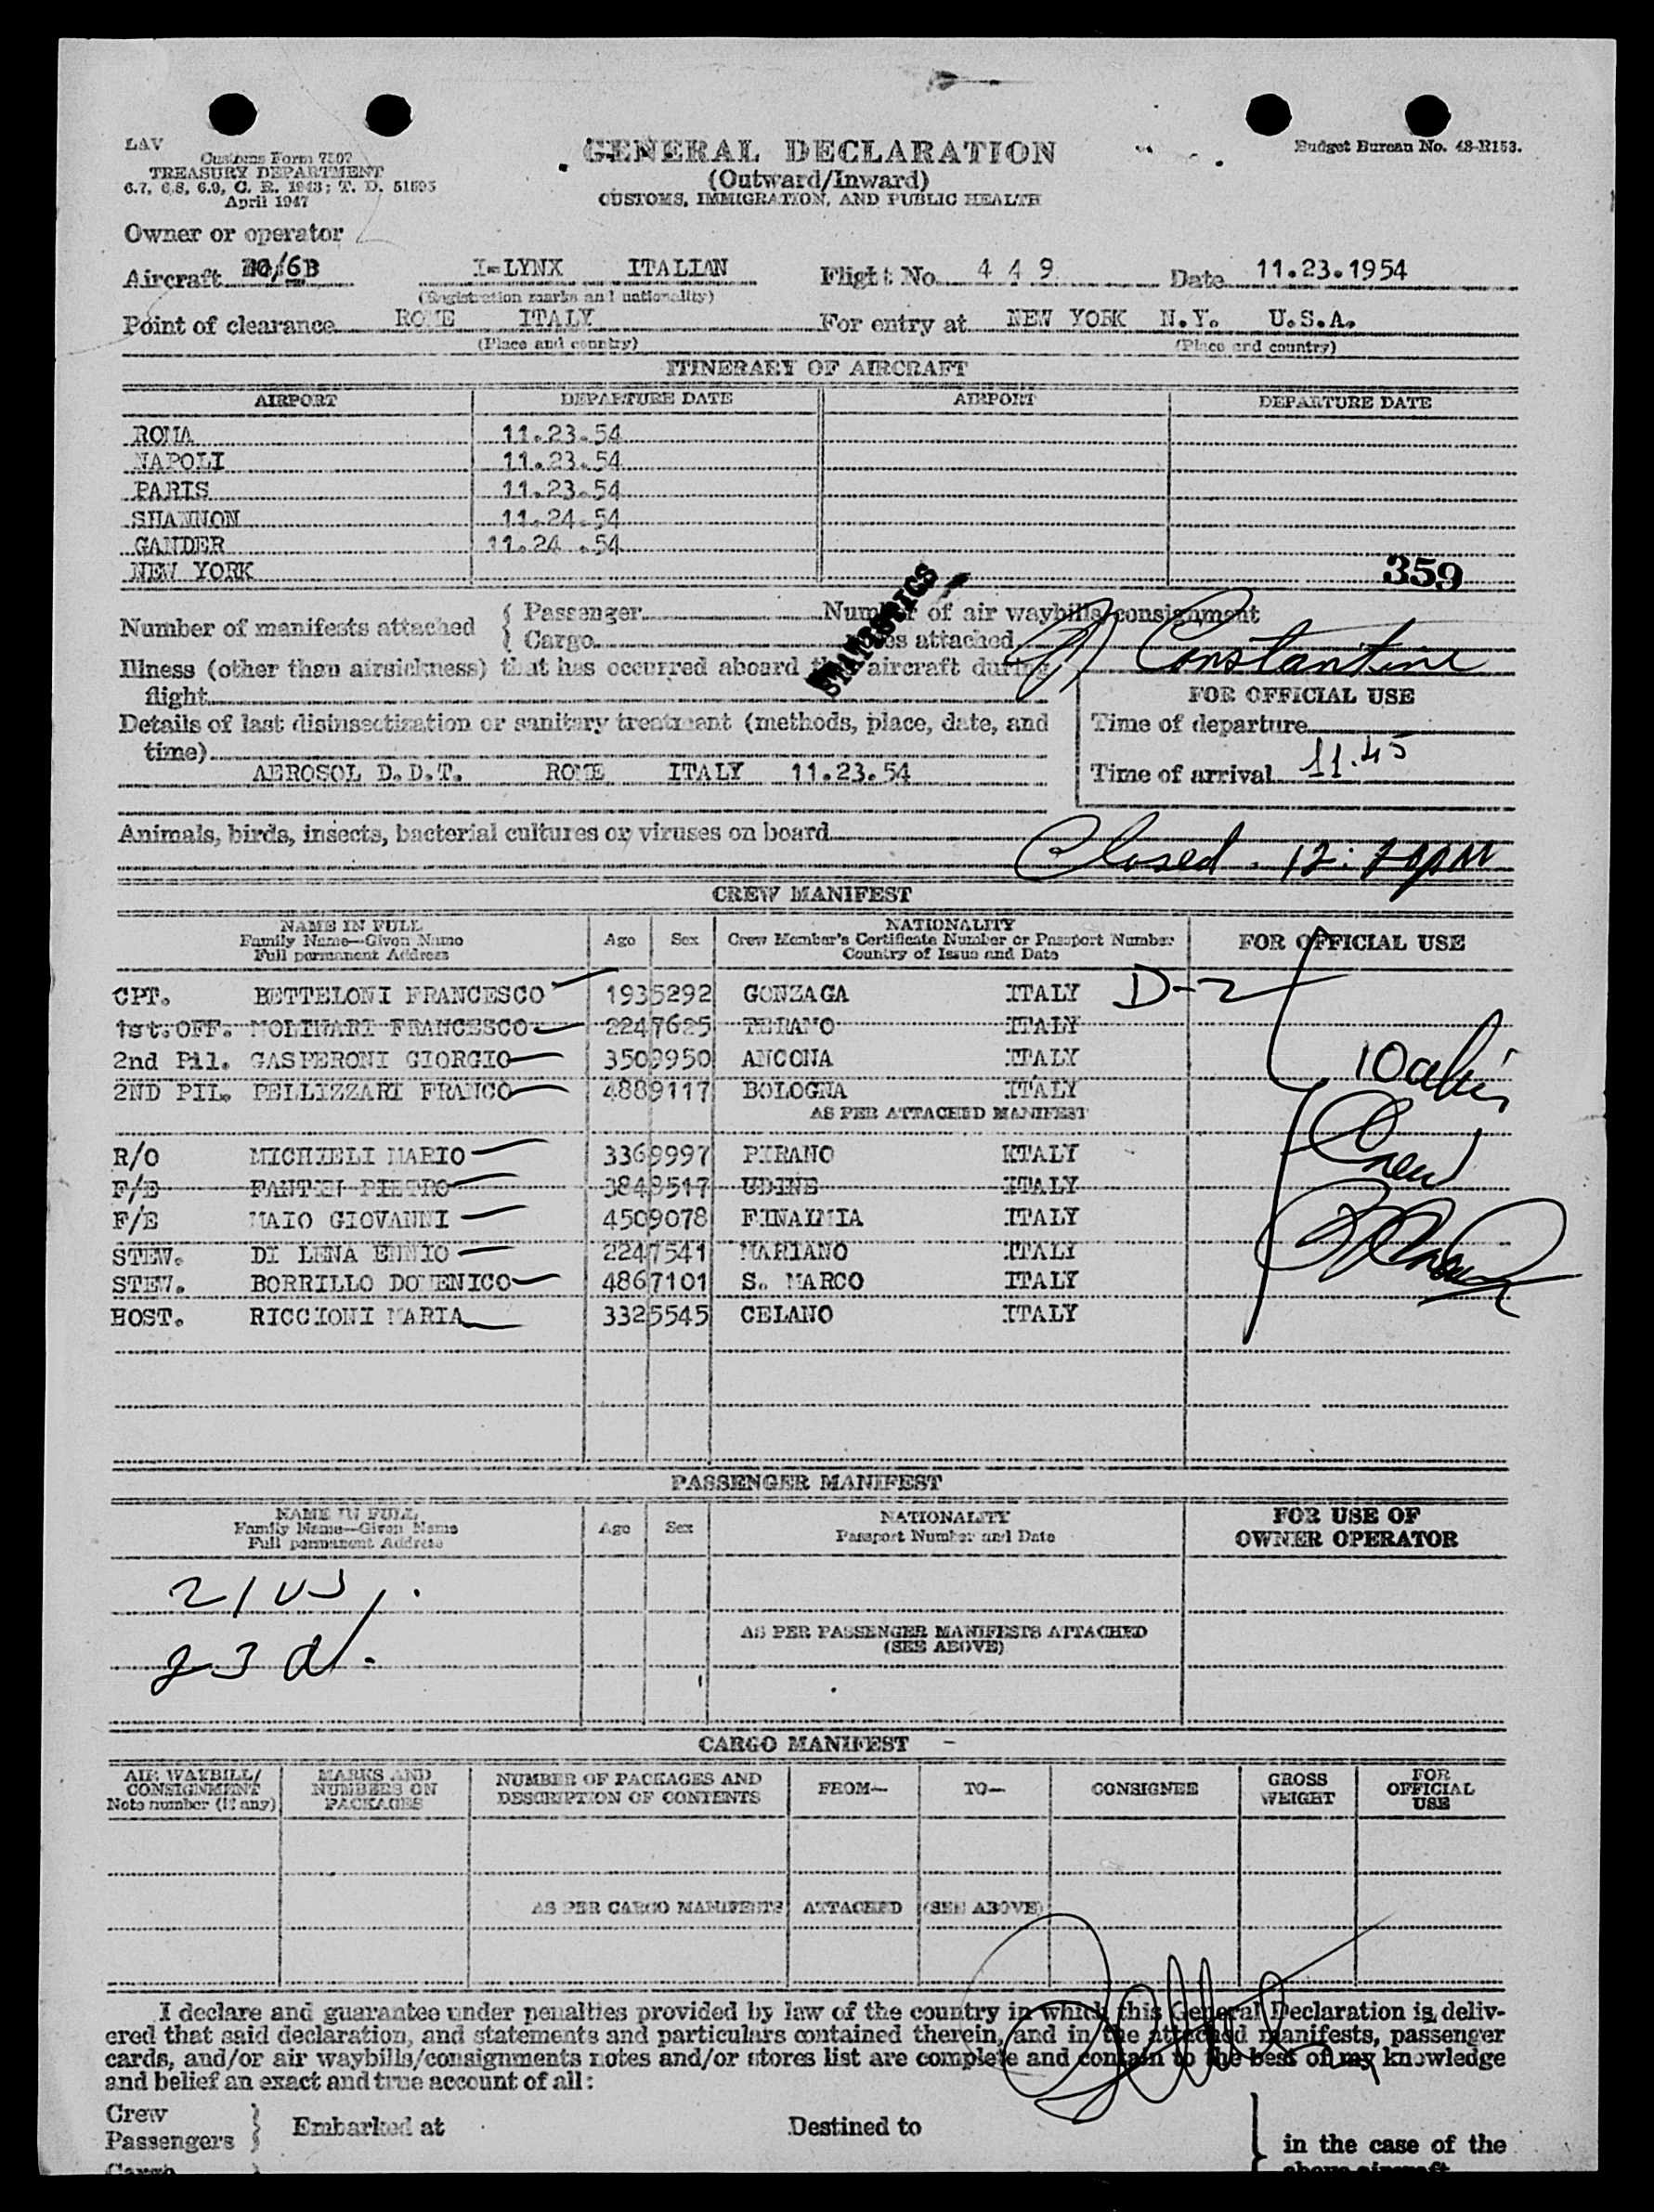 LAV
Customs Form 7507
TREASURY DEPARTMENT
6.7, 6.8, 6.9, C. R. 1943; T. D. 51595
April 1947
GENERAL DECLARATION
(Outward/Inward)
CUSTOMS, IMMIGRATION, AND PUBLIC HEALTH
Budget Bureau No. 48-R153.
Owner or operator
Aircraft /6B I-LYNX ITALIAN Flight No. 4 4 9 Date 11.23.1954
(Registration marks and nationality)
Point of clearance ROME ITALY For entry at NEW YORK N.Y. U.S.A.
(Place and country) (Place and country)
ITINERARY OF AIRCRAFT
AIRPORT DEPARTURE DATE AIRPORT DEPARTURE DATE
ROMA 11.23.54
NAPOLI 11.23.54
PARIS 11.23.54
SHANNON 11.24.54
GANDER 11.24 .54
NEW YORK 359
Number of manifests attached { Passenger Number of air waybills/consignment
Cargo notes attached
STATISTICS
Constantine
Illness (other than airsickness) that has occurred aboard the aircraft during
flight
FOR OFFICIAL USE
Details of last disinsectization or sanitary treatment (methods, place, date, and
time)
AEROSOL D.D.T. ROME ITALY 11.23.54
Time of departure
Time of arrival 11.45
Animals, birds, insects, bacterial cultures or viruses on board
Closed
CREW MANIFEST
NAME IN FULL
Family Name—Given Name
Full permanent Address
Age Sex
NATIONALITY
Crew Member's Certificate Number or Passport Number
Country of Issue and Date
FOR OFFICIAL USE
CPT. BETTELONI FRANCESCO 1935292 GONZAGA ITALY D-2
1st.OFF. MOLINARI FRANCESCO 2247625 TERAMO ITALY
2nd Pil. GASPERONI GIORGIO 3509950 ANCONA ITALY
2ND PIL. PELLIZZARI FRANCO 4889117 BOLOGNA ITALY
AS PER ATTACHED MANIFEST
R/O MICHIELI MARIO 3369997 PIRANO ITALY
F/E PIETRO 3848517 UDINE ITALY
F/E MAIO GIOVANNI 4509078 ITALY
STEW. DI LENA ENNIO 2247541 MARIANO ITALY
STEW. BORRILLO DOMENICO 4867101 S. MARCO ITALY
HOST. RICCIONI MARIA 3325545 CELANO ITALY
10
Crew
PASSENGER MANIFEST
NAME IN FULL
Family Name—Given Name
Full permanent Address
Age Sex
NATIONALITY
Passport Number and Date
FOR USE OF
OWNER OPERATOR
21 US
23 al.
AS PER PASSENGER MANIFESTS ATTACHED
(SEE ABOVE)
CARGO MANIFEST
AIR WAYBILL/
CONSIGNMENT
Note number (if any)
MARKS AND
NUMBERS ON
PACKAGES
NUMBER OF PACKAGES AND
DESCRIPTION OF CONTENTS
FROM— TO— CONSIGNEE
GROSS
WEIGHT
FOR
OFFICIAL
USE
AS PER CARGO MANIFESTS ATTACHED (SEE ABOVE)
I declare and guarantee under penalties provided by law of the country in which this General Declaration is deliv-
ered that said declaration, and statements and particulars contained therein, and in the attached manifests, passenger
cards, and/or air waybills/consignments notes and/or stores list are complete and contain to the best of my knowledge
and belief an exact and true account of all:
Crew
Passengers
Embarked at Destined to
in the case of the
Cargo above aircraft